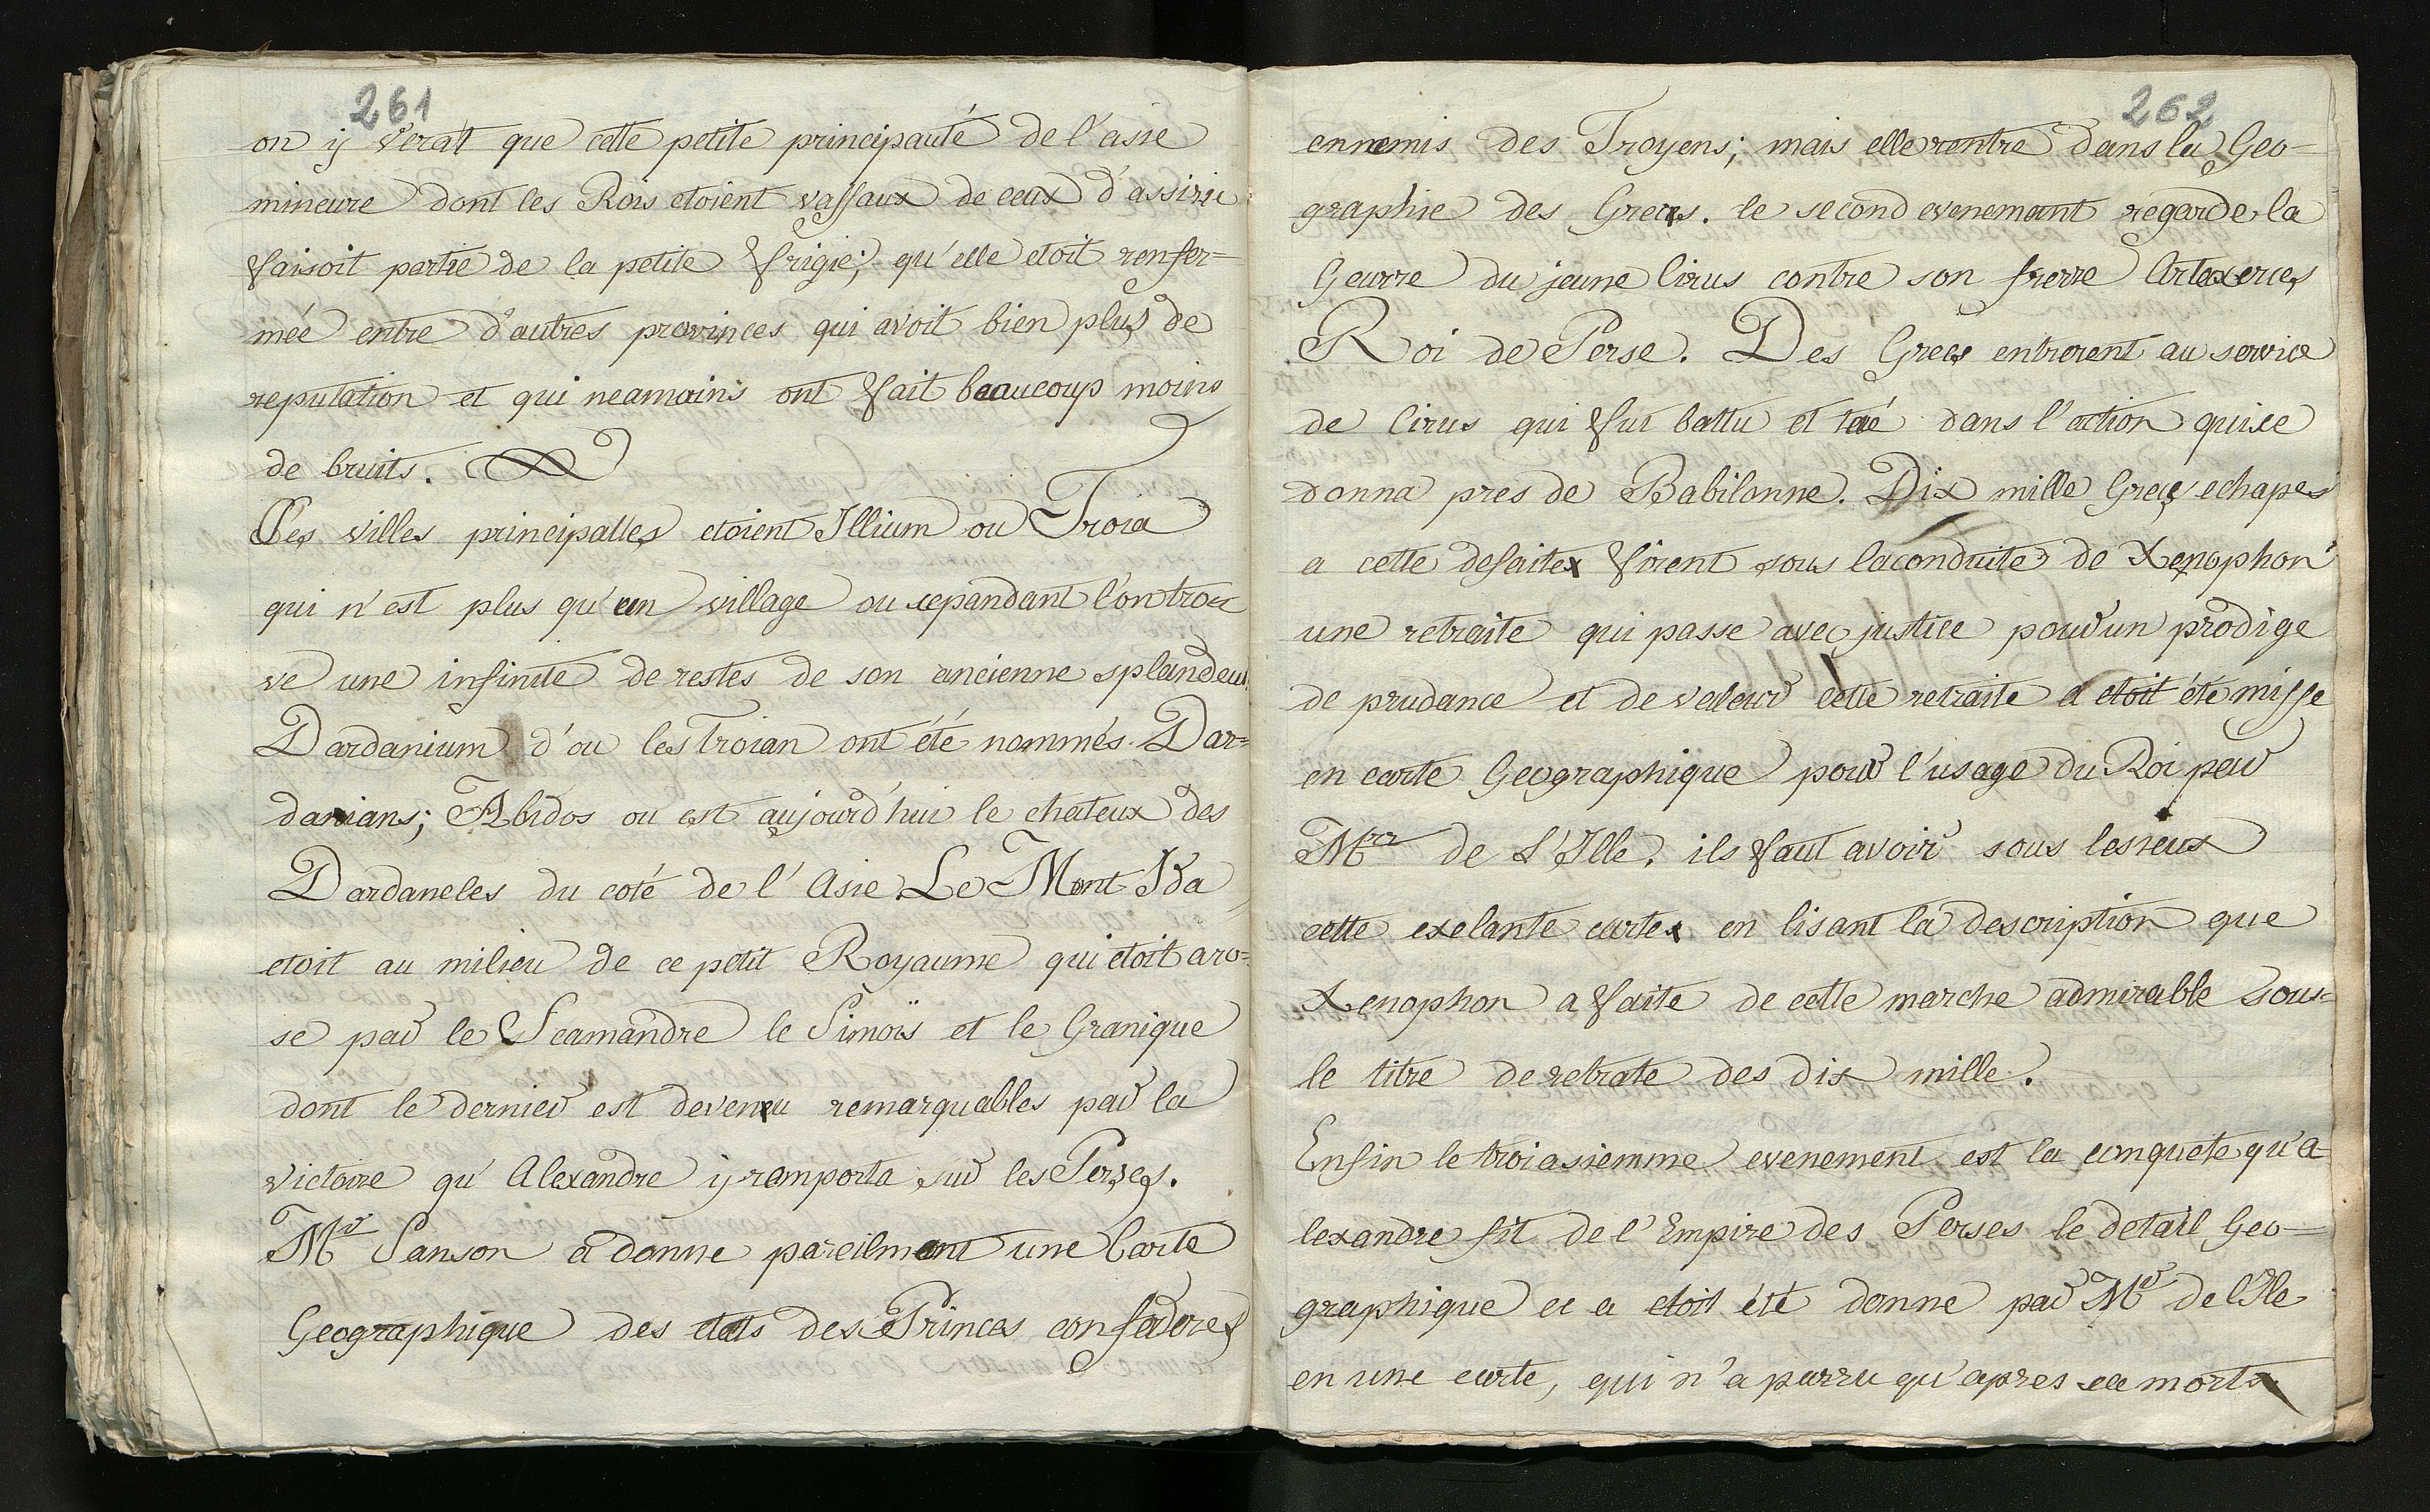 261
on ij verat que cette petite principauté de l'asie
mineure dont les Rois etoient vassaux de ceux d'assirie
faisoit partie de la petite frigie; qu'elle etoit renfer=
mée entre d'autres provinces qui avoit bien plus de
reputation et qui neamoins ont fait beaucoup moins
de bruits.
Ces villes principalles etoient Illium ou Troia
qui n'est plus qu'un village ou cepandant l'on trou
ve une infinite de restes de son ancienne splandeur
Dardanium d'ou les Troian ont été nommés Dar=
danians; Abidos ou est aujourd'hui le chateux des
Dardaneles du coté de l'Asie. Le Mont Ida
etoit au milieu de ce petit Royaume qui etoit aro=
se par le Scamandre le Simoïs et le Granique
dont le dernier est devenu remarquables par la
victoire qu'Alexandre ij remporta sur les Perses.
Mr Sanson a donne pareilmant une Carte
Geographique des etats des Princes confederes
262
ennemis des Troyens; mais elle rentre dans la Geo-
graphie des Grecs. le second evenemant regarde la
Geurre du jeune Cirus contre son frerre Artaxerces
Roi de Perse. Des Grecs entrerent au service
de Cirus qui fut battu et tué dans l'action qui se
donna pres de Babilonne. Dix mille Grecs echapes
a cette defaite firent sous la conduite de Xenophon
une retraite qui passe avec justice pour un prodige
de prudance et de valeur cette retraite a etoit éte misse
en carte Geographique pour l'usage du Roi par
Mr de L'Ille, ils faut avoir sous les ieux
cette exelante carte en lisant la description que
Xenophon a faite de cette marche admirable sous=
le titre de retrate des dix mille.
Enfin le troiasiemme evenement est la conquete qu'a=
lexandre fit de l'Empire des Perses le detail Geo-
graphique en a etoit été donne par Mr de l'Ile
en une carte, qui n'a parru qu'apres sa morts